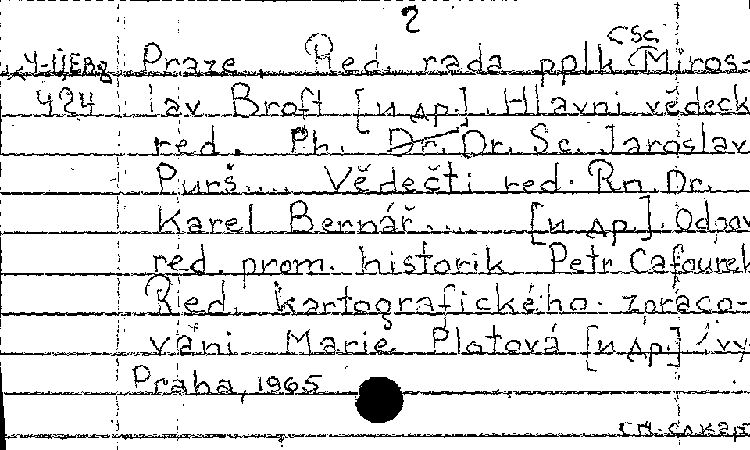 2
Ч-ЦЕвд Praze. Red. rada pplk CSc Miros-
424 lav Broft [и др.]. Hlavni vědeck
red. Ph. Dr. Dr. Sc. Jaroslav
Purš.... Vědečti red. Rn. Dr.
Karel Bernář.... [и др.]. Odpov
red. prom. historik Petr Cafourek
Red. kartografického zpraco-
váni Marie Platová [и др.]
Praha, 1965
см. след